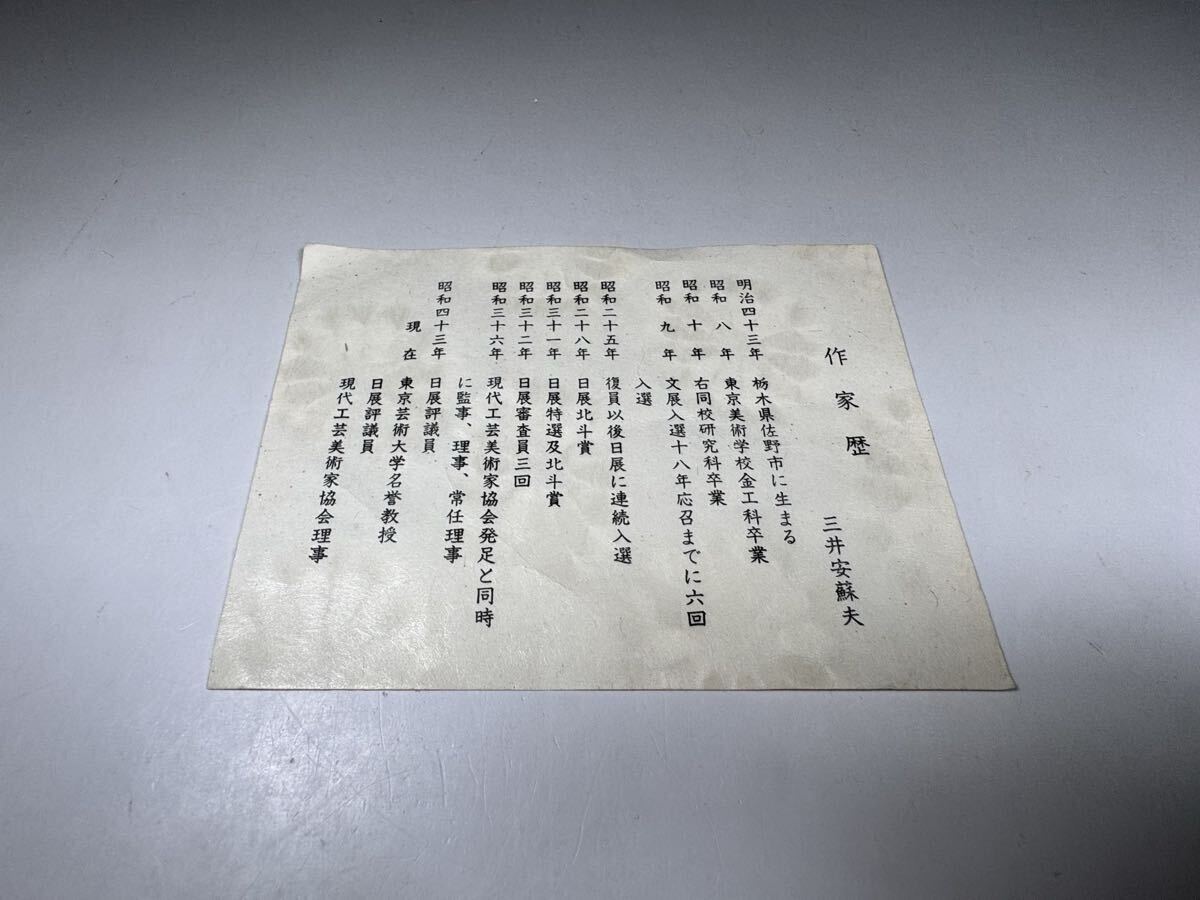 作家歴
三井安蘇夫
明治四十三年 栃木県佐野市に生まる
昭和八年 東京美術学校金工科卒業
昭和十年 右同校研究科卒業
昭和九年 文展入選十八年応召までに六回
入選
昭和二十五年 復員以後日展に連続入選
昭和二十八年 日展北斗賞
昭和三十一年 日展特選及北斗賞
昭和三十二年 日展審査員三回
昭和三十六年 現代工芸美術家協会発足と同時
に監事、理事、常任理事
昭和四十三年 日展評議員
現在 東京芸術大学名誉教授
日展評議員
現代工芸美術家協会理事